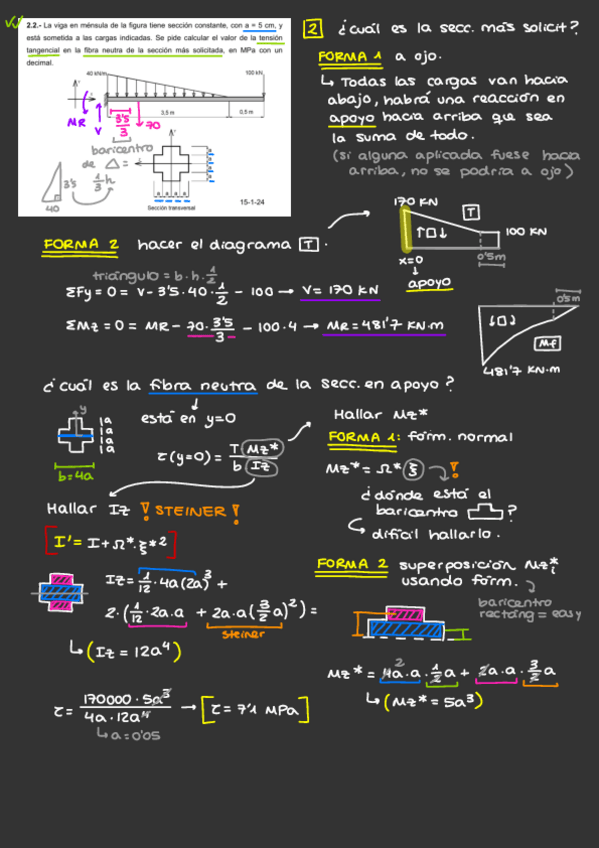 2.2.- La viga en ménsula de la figura tiene sección constante, con a = 5 cm, y
está sometida a las cargas indicadas. Se pide calcular el valor de la tensión
tangencial en la fibra neutra de la sección más solicitada, en MPa con un
decimal.
40 kN/m
100 kN
MR
V
3'5
3
70
3,5 m
0,5 m
baricentro
de △ =
1/3 h
3'5
40
a
a
a
a
a a a a
Sección transversal
15-1-24
2 ¿cuál es la secc. más solicit?
FORMA 1 a ojo.
↳ Todas las cargas van hacia
abajo, habrá una reacción en
apoyo hacia arriba que sea
la suma de todo.
(si alguna aplicada fuese hacia
arriba, no se podría a ojo)
FORMA 2 hacer el diagrama T.
170 KN
T
100 KN
x=0
0'5m
apoyo
triángulo = b·h·1/2
ΣFy = 0 = V - 3'5·40·1/2 - 100 → V = 170 KN
ΣMz = 0 = MR - 70·3'5/3 - 100·4 → MR = 481'7 KN·m
0'5m
Mf
481'7 KN·m
¿cuál es la fibra neutra de la secc. en apoyo?
está en y=0
y
1a
1a
1a
1a
b=4a
τ(y=0) = T Mz* / b Iz
Hallar Mz*
FORMA 1: fórm. normal
Mz* = Ω* ξ !
¿dónde está el
baricentro ?
difícil hallarlo.
Hallar Iz ! STEINER !
[I' = I + Ω*·ξ*²]
Iz = 1/12·4a(2a)³ +
2·(1/12·2a·a + 2a·a(3/2 a)²) =
steiner
↳ (Iz = 12a⁴)
FORMA 2 superposición Mz*i
usando fórm.
baricentro
rectáng = easy
Mz* = 4a·a·1/2 a + 2a·a·3/2 a
↳ (Mz* = 5a³)
τ = 170000·5a³ / 4a·12a⁴ → [τ = 7'1 MPa]
↳ a = 0'05